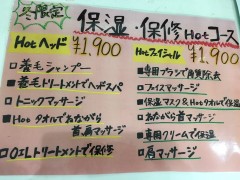 限定
保湿・保修Hotコース
Hotヘッド ¥1,900
養毛シャンプー
養毛トリートメントでヘッドスパ
トニックマッサージ
Hotタオルであたため
首肩マッサージ
OILトリートメントで保修
Hotフェイシャル ¥1,900
専用ブラシで角質除去
フェイスマッサージ
保湿マスク&Hotタオルで保湿
あたながら首マッサージ
専用クリームで保湿
肩マッサージ